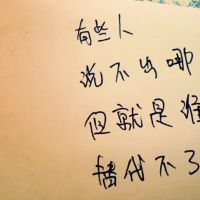 有些人
说不出哪
但就是谁
替代不了